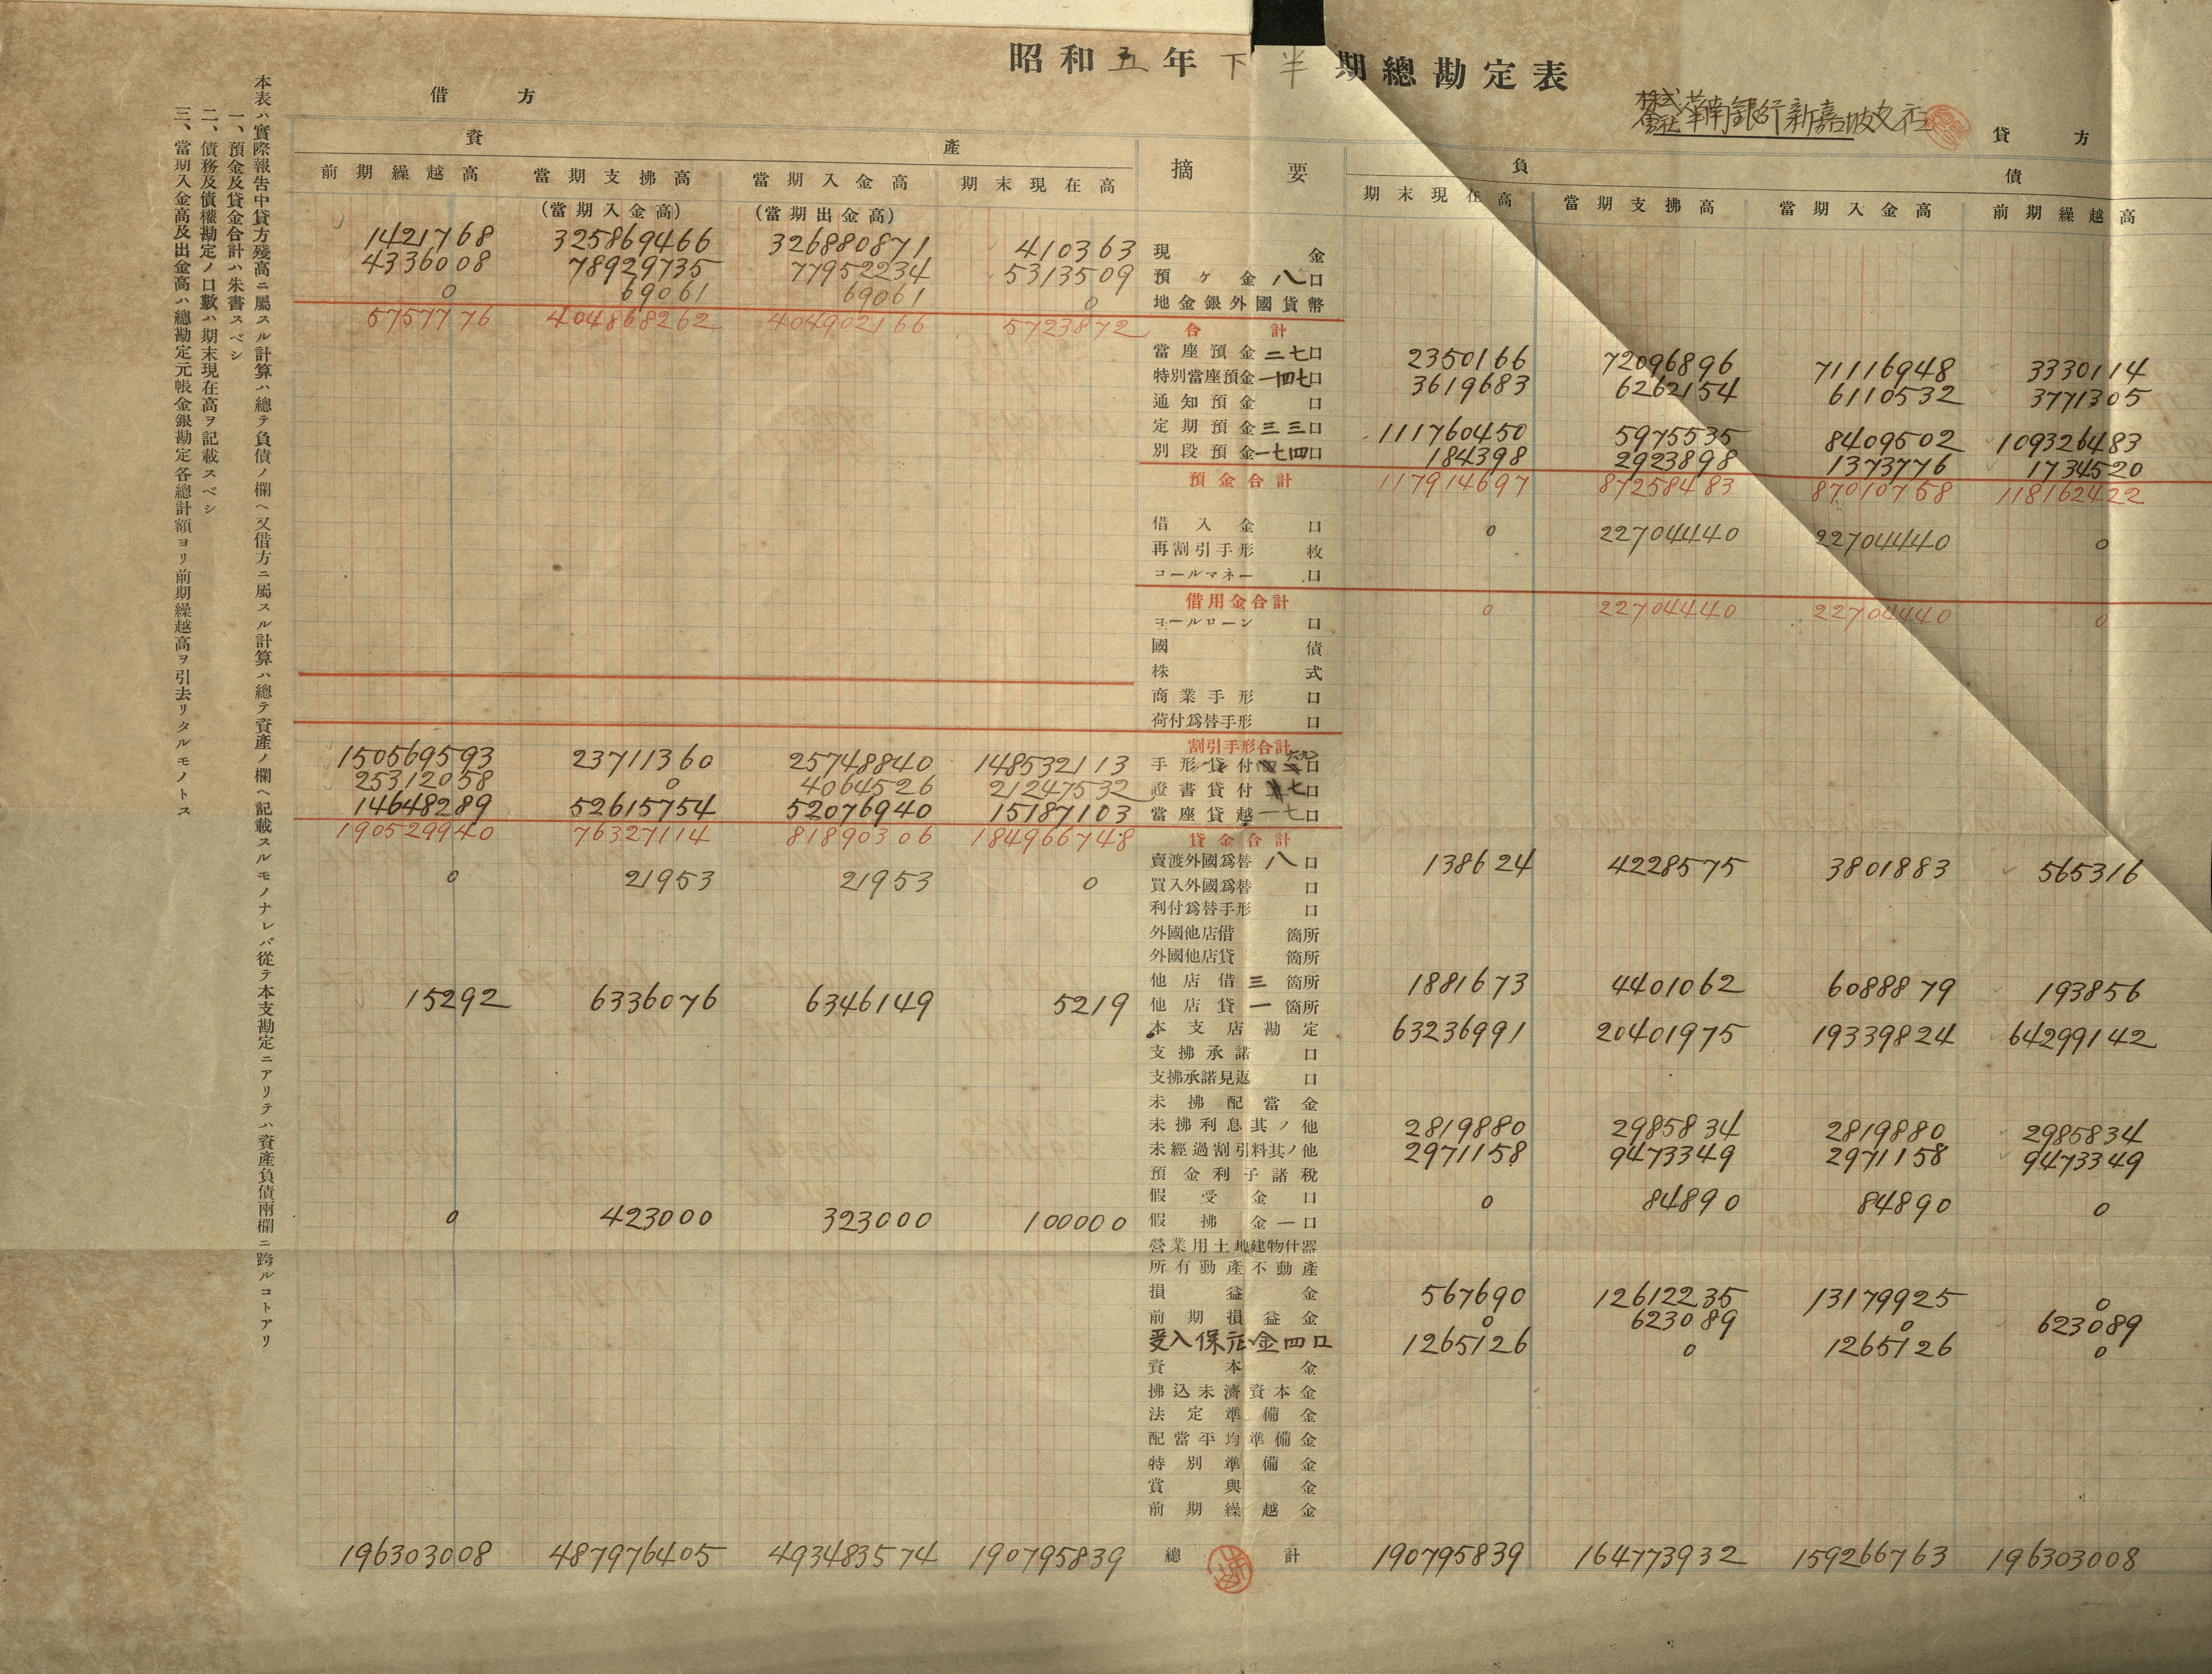 昭和五年下半期總勘定表
株式會社華南銀行新嘉坡支店
借方
貸方
資產
摘要
負債
前期繰越高 當期支拂高 當期入金高 期末現在高 期末現在高 當期支拂高 當期入金高 前期繰越高
(當期入金高) (當期出金高)
1421768 325869466 326880871 410363 現金
4336008 78929735 77952234 5313509 預ヶ金八口
0 69061 69061 0 地金銀外國貨幣
5757776 404868262 404902166 5723872 合計
當座預金二七口 2350166 72096896 71116948 3330114
特別當座預金一四七口 3619683 6262154 6110532 3771305
通知預金口
定期預金三三口 111760450 5975535 8409502 109326483
別段預金一七四口 184398 2923898 1373776 1734520
預金合計 117914697 87258483 87010758 118162422
借入金口 0 22704440 22704440 0
再割引手形枚
コールマネー口
借用金合計 0 22704440 22704440 0
コールローン口
國債
株式
商業手形口
荷付爲替手形口
割引手形合計
150569593 23711360 25748840 148532113 手形貸付六九口
25312058 0 4064526 21247532 證書貸付七口
14648289 52615754 52076940 15187103 當座貸越一七口
190529940 76327114 81890306 184966748 貸金合計
賣渡外國爲替八口 138624 4228575 3801883 565316
0 21953 21953 0 買入外國爲替口
利付爲替手形口
外國他店借箇所
外國他店貸箇所
他店借三箇所 1881673 4401062 6088879 193856
15292 6336076 6346149 5219 他店貸一箇所
本支店勘定 63236991 20401975 19339824 64299142
支拂承諾口
支拂承諾見返口
未拂配當金
未拂利息其ノ他 2819880 2985834 2819880 2985834
未經過割引料其ノ他 2971158 9473349 2971158 9473349
預金利子諸稅
假受金口 0 84890 84890 0
0 423000 323000 100000 假拂金一口
營業用土地建物什器
所有動產不動產
損益金 567690 12612235 13179925 0
前期損益金 0 623089 0 623089
受入保証金四口 1265126 0 1265126 0
資本金
拂込未濟資本金
法定準備金
配當平均準備金
特別準備金
賞與金
前期繰越金
196303008 487976405 493483574 190795839 總計 190795839 164773932 159266763 196303008
本表ハ實際報告中貸方殘高ニ屬スル計算ハ總テ負債ノ欄ヘ又借方ニ屬スル計算ハ總テ資產ノ欄ヘ記載スルモノナレバ從テ本支勘定ニアリテハ資產負債兩欄ニ跨ルコトアリ
一、預金及貸金合計ハ朱書スベシ
二、債務及債權勘定ノ口數ハ期末現在高ヲ記載スベシ
三、當期入金高及出金高ハ總勘定元帳金銀勘定各總計額ヨリ前期繰越高ヲ引去リタルモノトス